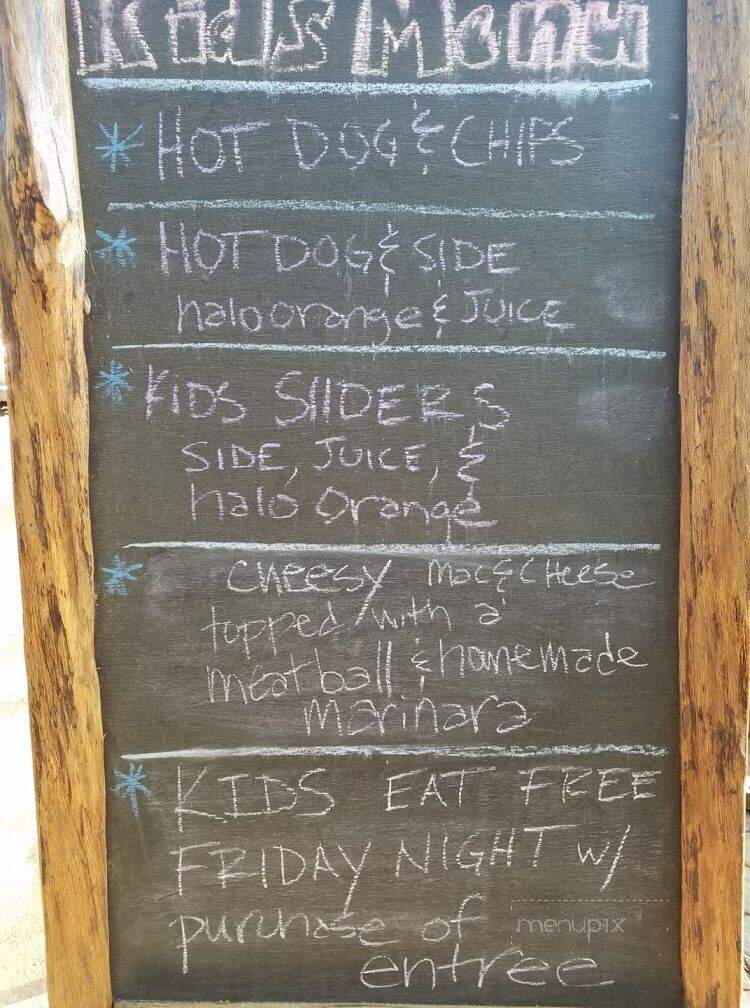 Kids Menu
* HOT DOG & CHIPS
* HOT DOG & SIDE
halo orange & JUICE
* KIDS SLIDERS
SIDE, JUICE, &
halo orange
* CHEESY Mac & CHeese
topped with a
meatball & homemade
marinara
* KIDS EAT FREE
FRIDAY NIGHT w/
purchase of
menupix
entree